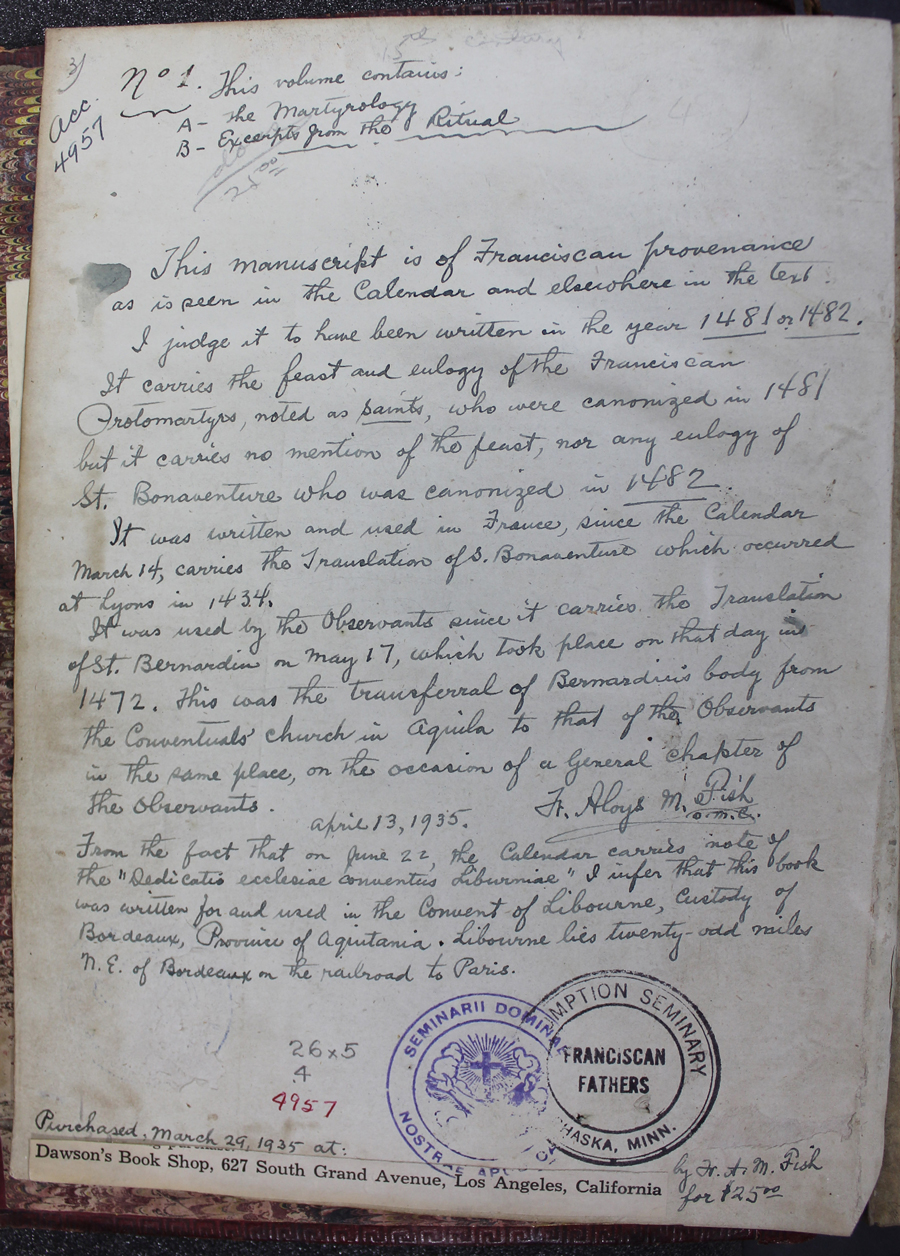 3)
Acc.
4957
15th century
No 1. This volume contains:
A- the Martyrology
B- Excerpts from the Ritual
4
This manuscript is of Franciscan provenance
as is seen in the Calendar and elsewhere in the text.
I judge it to have been written in the year 1481 or 1482.
It carries the feast and eulogy of the Franciscan
Protomartyrs, noted as saints, who were canonized in 1481
but it carries no mention of the feast, nor any eulogy of
St. Bonaventure who was canonized in 1482.
It was written and used in France, since the Calendar
March 14, carries the Translation of S. Bonaventure which occurred
at Lyons in 1434.
It was used by the Observants since it carries the Translation
of St. Bernardin on May 17, which took place on that day in
1472. This was the transferral of Bernardin's body from
the Conventuals' church in Aquila to that of the Observants
in the same place, on the occasion of a General chapter of
the Observants.
Fr. Aloys M. Fish
O.M.C.
April 13, 1935.
From the fact that on June 22, the Calendar carries note of
the "Dedicatio ecclesiae conventus Liburniae" I infer that this book
was written for and used in the Convent of Libourne, Custody of
Bordeaux, Province of Aquitania. Libourne lies twenty-odd miles
N.E. of Bordeaux on the railroad to Paris.
26x5
4
4957
SEMINARII DOMINAE
NOSTRAE
MPTION SEMINARY
FRANCISCAN
FATHERS
HASKA, MINN.
Purchased, March 29, 1935 at:
Dawson's Book Shop, 627 South Grand Avenue, Los Angeles, California
by Fr. A. M. Fish
for $25.00